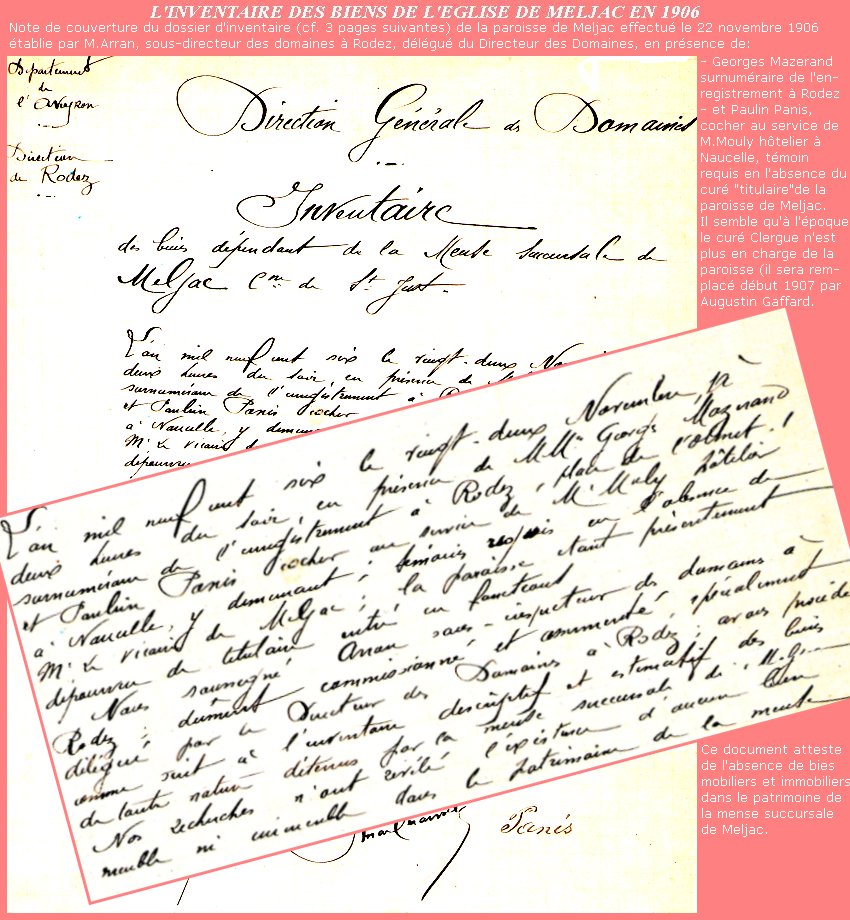 L'INVENTAIRE DES BIENS DE L'EGLISE DE MELJAC EN 1906
Note de couverture du dossier d'inventaire (cf. 3 pages suivantes) de la paroisse de Meljac effectué le 22 novembre 1906
établie par M.Arran, sous-directeur des domaines à Rodez, délégué du Directeur des Domaines, en présence de:
- Georges Mazerand
surnuméraire de l'en-
registrement à Rodez
- et Paulin Panis,
cocher au service de
M.Mouly hôtelier à
Naucelle, témoin
requis en l'absence du
curé "titulaire"de la
paroisse de Meljac.
Il semble qu'à l'époque
le curé Clergue n'est
plus en charge de la
paroisse (il sera rem-
placé début 1907 par
Augustin Gaffard.
Département
de
l'Aveyron
Direction
de Rodez
Direction Générale des Domaines
Inventaire
des biens dépendant de la Mense succursale de
Meljac Cne de St Just.
L'an mil neuf cent six le vingt-deux Nov
deux heures du soir, en présence de
surnuméraire de l'enregistrement à
et Paulin Panis cocher
à Naucelle, y demeu
Mr Le vicaire d
dépourvu
L'an mil neuf cent six le vingt-deux Novembre, à
deux heures du soir, en présence de MMrs Georges Mazerand
surnuméraire de l'enregistrement à Rodez, place de l'Olmet, 1
et Paulin Panis cocher au service de Mr Mouly hôtelier
à Naucelle, y demeurant; témoins requis en l'absence de
Mr Le vicaire de Meljac; la paroisse étant présentement
dépourvue de titulaire entré en fonctions
Nous soussigné Arran sous-inspecteur des domaines à
Rodez; dûment commissionné et assermenté, spécialement
délégué par le Directeur des Domaines à Rodez; avons procédé
comme suit à l'inventaire descriptif et estimatif des biens
de toute nature détenus par la mense succursale de Mel
Nos recherches n'ont révélé l'existence d'aucun bien
meuble ni immeuble dans le patrimoine de la mense
Panis
Ce document atteste
de l'absence de bies
mobiliers et immobiliers
dans le patrimoine de
la mense succursale
de Meljac.